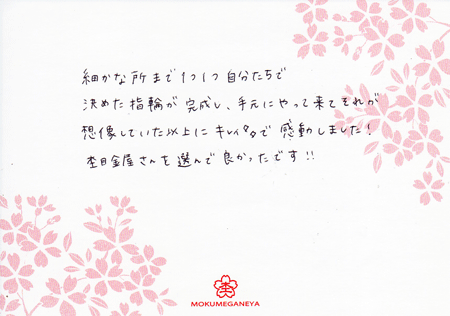 細かな所まで1つ1つ自分たちで
決めた指輪が完成し、手元にやって来てそれが
想像していた以上にキレイで感動しました!
杢目金屋さんを選んで良かったです!!
杢
MOKUMEGANEYA